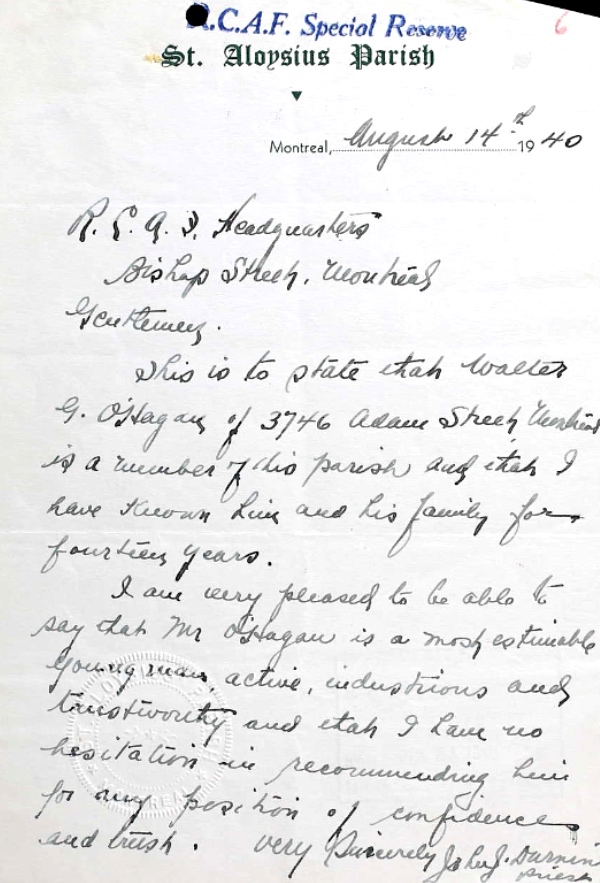 R.C.A.F. Special Reserve
6
St. Aloysius Parish
Montreal, August 14th 1940
R. C. A. F. Headquarters
Bishop Street, Montreal
Gentlemen.
This is to state that Walter
G. O'Hagan of 3746 Adam Street Montreal
is a member of this parish and that I
have known him and his family for
fourteen years.
I am very pleased to be able to
say that Mr O'Hagan is a most estimable
young man, active, industrious and
trustworthy and that I have no
hesitation in recommending him
for any position of confidence
and trust. Very Sincerely John J.
Priest